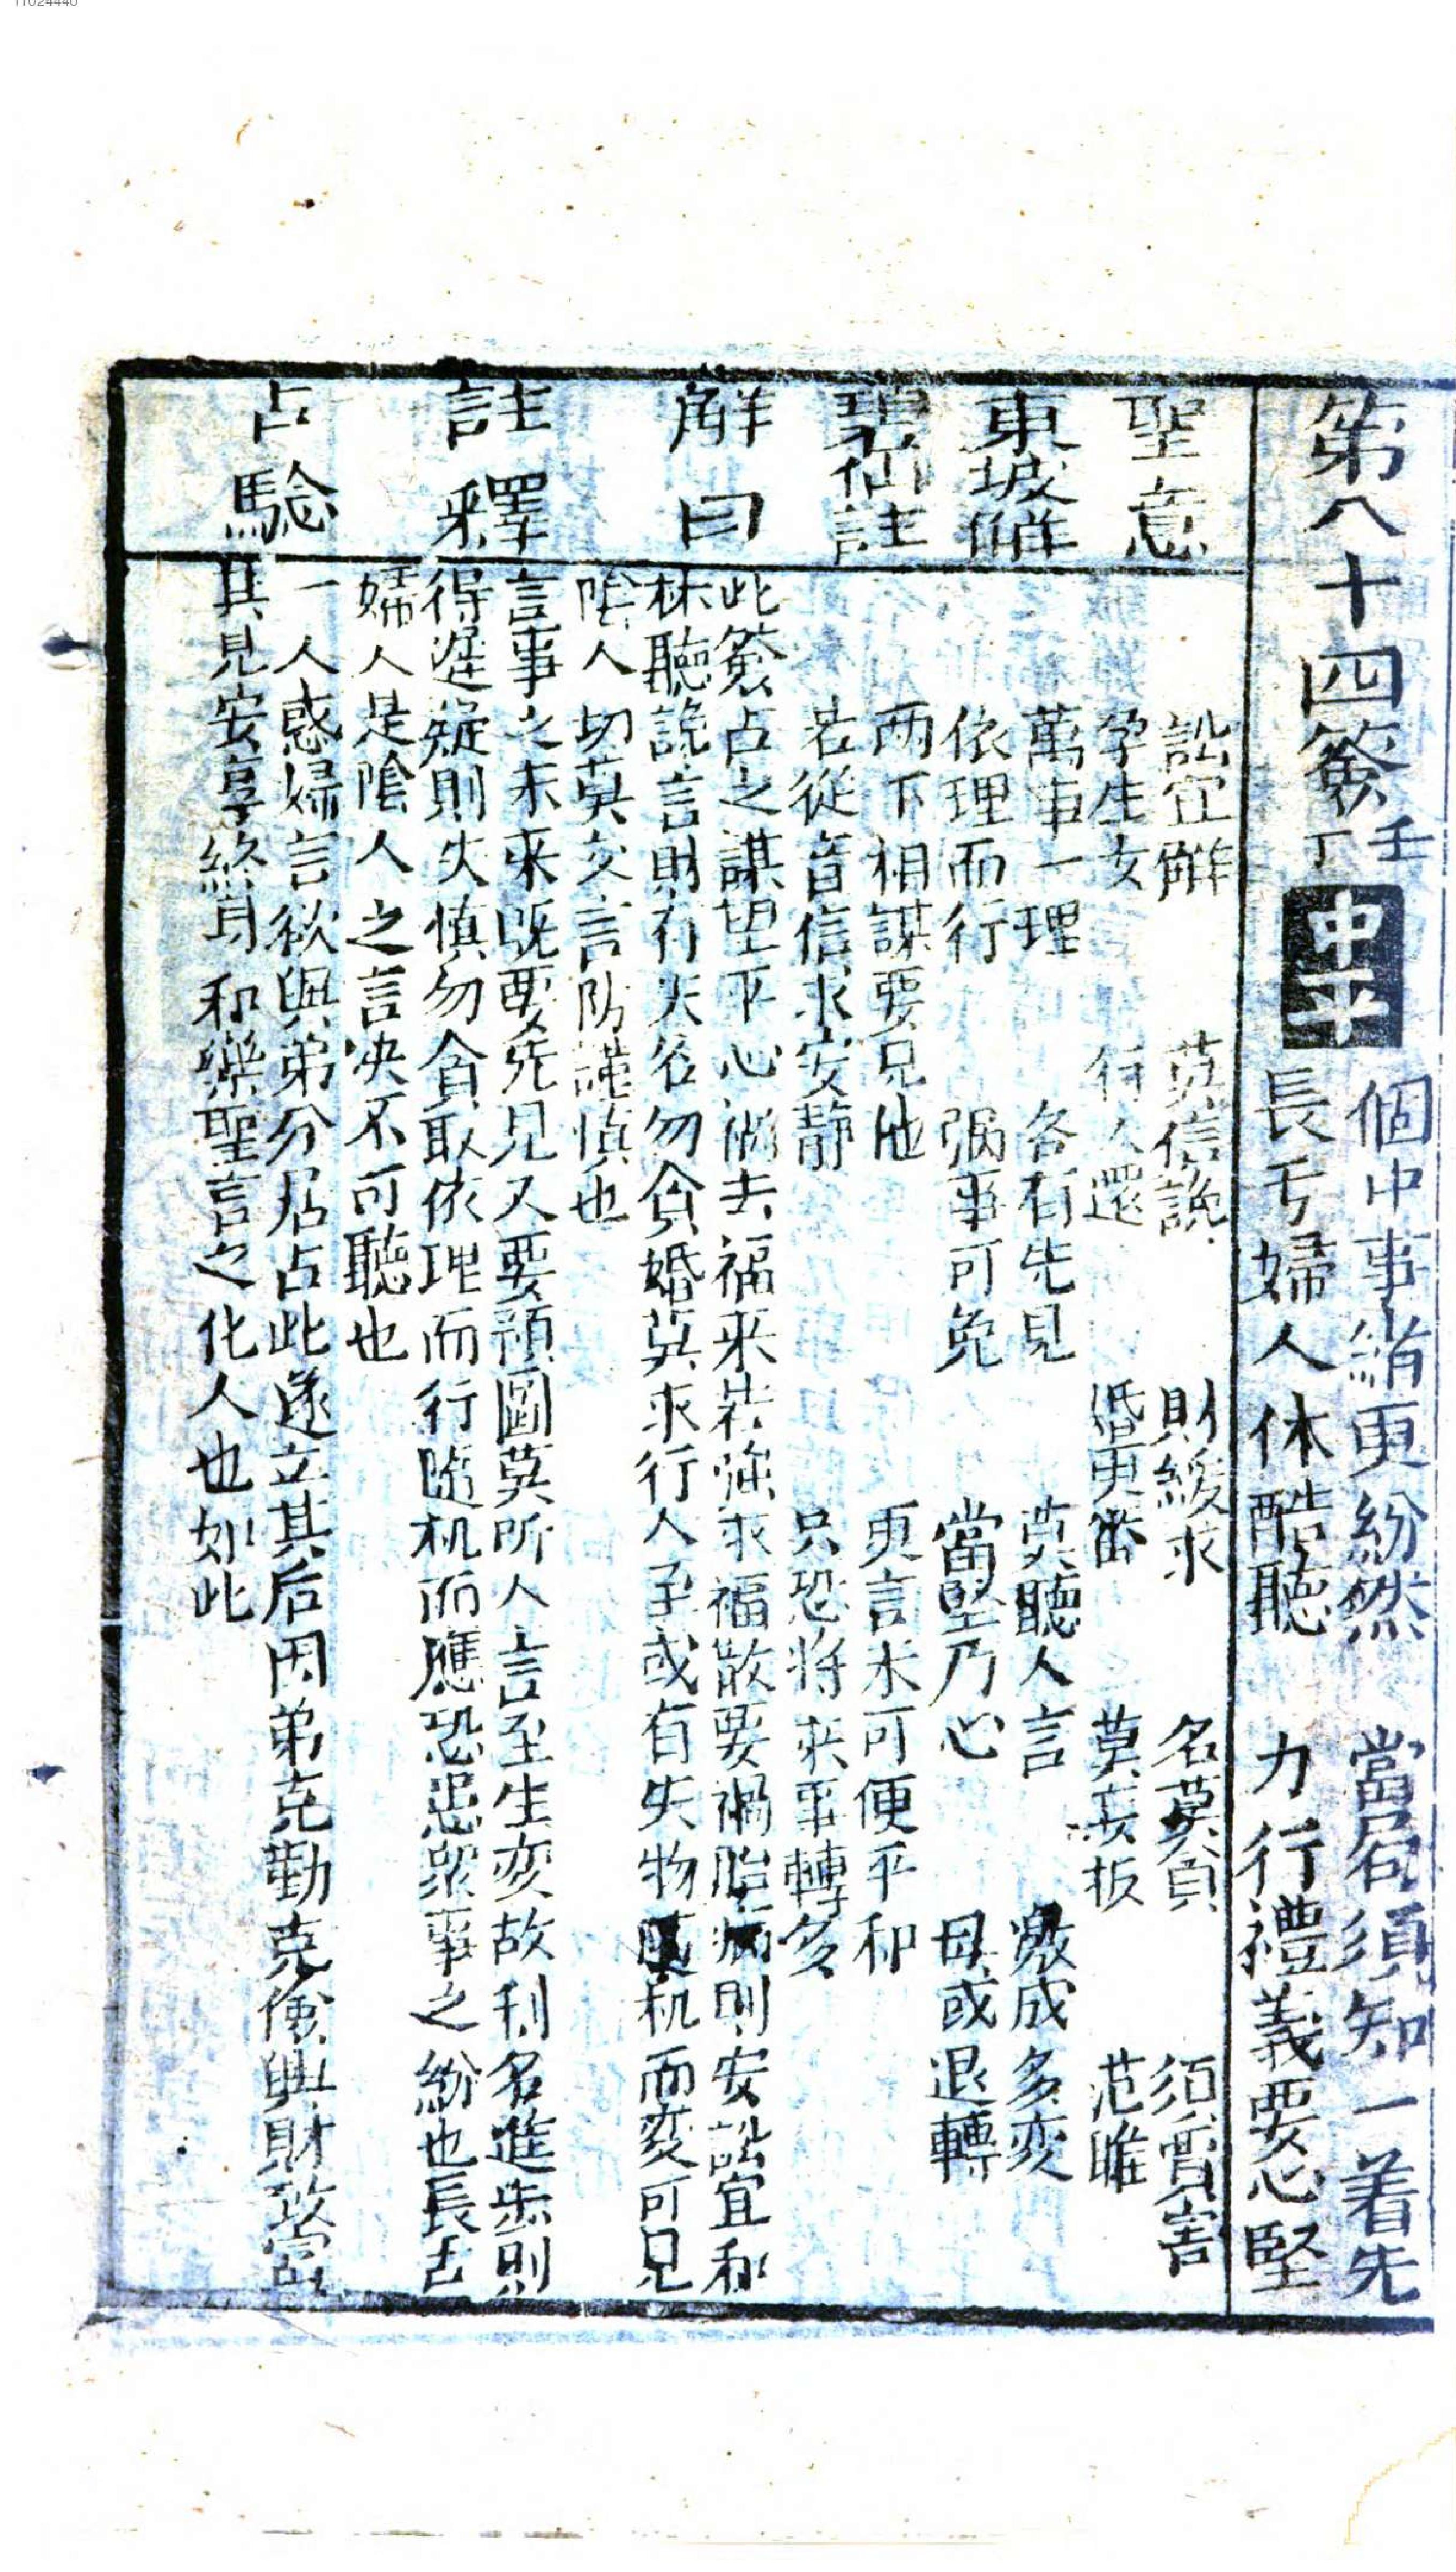 第八十四簽 壬丁 中平
個中事緒更紛然 當局須知一着先
長舌婦人休酷聽 力行禮義要心堅
聖意
訟宜解 莫信讒 財緩求 名莫貪 須審害
孕生女 行人還 婚更審 莫妄扳 范睢
東坡解
萬事一理 各有先見 莫聽人言 變成多変
依理而行 禍事可免 當堅乃心 毋或退轉
碧仙註
两下相謀要見他 更言未可便平和
若從音信求安靜 只恐将來事轉多
解曰
此簽占之謀望平心禍去福来若強求福散要禍胎病則安訟宜和
休聽讒言財有失名勿貪婚莫求行人至或有失物随机而変可見
隂人切莫交言防謹慎也
註釋
言事之未來既要先見又要預圖莫听人言至生変故利名進步則
得遲疑則失慎勿貪取依理而行隨机而應恐惹眾事之紛也長舌
婦人是隂人之言决不可聽也
占驗
一人惑婦言欲與弟分居占此遂立其后因弟克勤克儉興財致富
其見安享終身和樂聖言之化人也如此